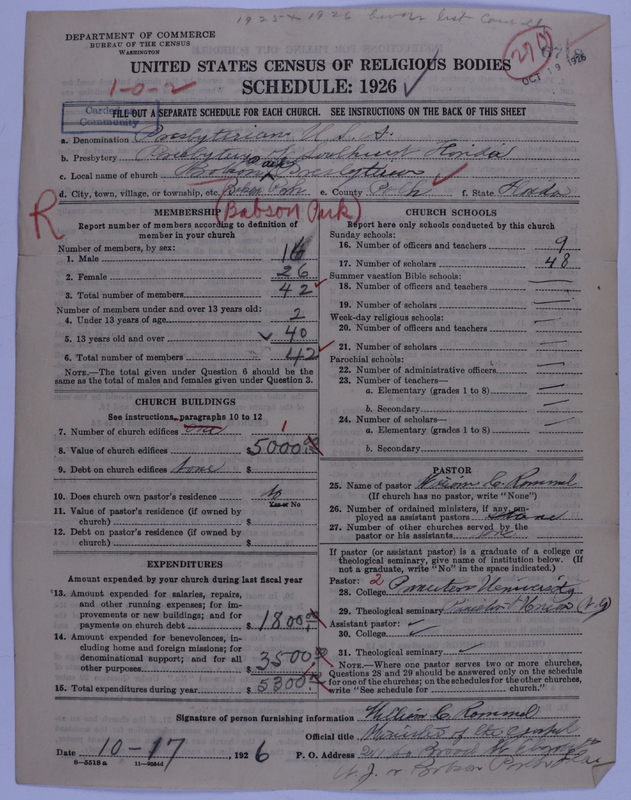 1925 & 1926
DEPARTMENT OF COMMERCE
BUREAU OF THE CENSUS
WASHINGTON
OCT 19 1926
UNITED STATES CENSUS OF RELIGIOUS BODIES
SCHEDULE: 1926
1-0-2
FILL OUT A SEPARATE SCHEDULE FOR EACH CHURCH. SEE INSTRUCTIONS ON THE BACK OF THIS SHEET
Carded
Community
a. Denomination Presbyterian U.S.A.
b. Presbytery Presbytery of Southwest Florida
c. Local name of church Babson Park Presbyterian
d. City, town, village, or township, etc. Babson Park e. County Polk f. State Florida
R (Babson Park)
MEMBERSHIP
Report number of members according to definition of
member in your church
Number of members, by sex:
1. Male 16
2. Female 26
3. Total number of members 42
Number of members under and over 13 years old:
4. Under 13 years of age 2
5. 13 years old and over 40
6. Total number of members 42
NOTE.—The total given under Question 6 should be
same as the total of males and females given under Question 3.
CHURCH BUILDINGS
See instructions, paragraphs 10 to 12
7. Number of church edifices one 1
8. Value of church edifices $5000.00
9. Debt on church edifices None $
10. Does church own pastor's residence No
Yes or No
11. Value of pastor's residence (if owned by
church) $
12. Debt on pastor's residence (if owned by
church) $
EXPENDITURES
Amount expended by your church during last fiscal year
13. Amount expended for salaries, repairs,
and other running expenses; for im-
provements or new buildings; and for
payments on church debt $1800.00
14. Amount expended for benevolences, in-
cluding home and foreign missions; for
denominational support; and for all
other purposes $3500.00
15. Total expenditures during year $5300.00
CHURCH SCHOOLS
Report here only schools conducted by this church
Sunday schools:
16. Number of officers and teachers 9
17. Number of scholars 48
Summer vacation Bible schools:
18. Number of officers and teachers —
19. Number of scholars —
Week-day religious schools:
20. Number of officers and teachers —
21. Number of scholars —
Parochial schools:
22. Number of administrative officers —
23. Number of teachers—
a. Elementary (grades 1 to 8) —
b. Secondary —
24. Number of scholars—
a. Elementary (grades 1 to 8) —
b. Secondary
PASTOR
25. Name of pastor William C. Rommel
(If church has no pastor, write "None")
26. Number of ordained ministers, if any, em-
ployed as assistant pastors None
27. Number of other churches served by the
pastor or his assistants
If pastor (or assistant pastor) is a graduate of a college or
theological seminary, give name of institution below. (If
not a graduate, write "No" in the space indicated.)
Pastor: 2
28. College Princeton University
29. Theological seminary Union
Assistant pastor:
30. College
31. Theological seminary
NOTE.—Where one pastor serves two or more churches,
Questions 28 and 29 should be answered only on the schedule
for one of the churches; on the schedules for the other churches,
write "See schedule for church."
Signature of person furnishing information William C. Rommel
Official title Minister of the Gospel
Date 10-17, 1926 P. O. Address Broad St
N.J. or Babson Park Fla
8—5518a